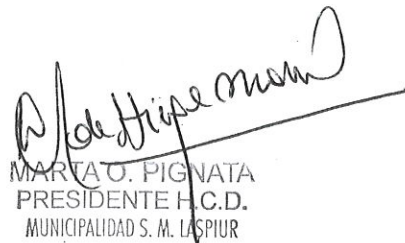 MARTA O. PIGNATA
PRESIDENTE H.C.D.
MUNICIPALIDAD S. M. LASPIUR